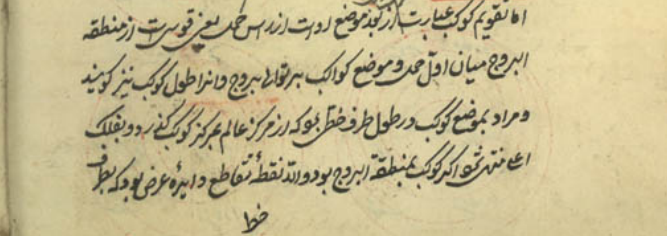 اما تقویم کوکب عبارت از بعد موضع اوست از راس حمل یعنی قوسی است از منطقه
البروج میان اول حمل و موضع کواکب بر توالی بروج و انرا طول کوکب نیز کویند
و مراد بموضع کوکب در طول طرف خطی بود که از مرکز عالم بمرکز کوکب کذرد و بفلک
اعلی منتهی شود اکر کوکب بمنطقة البروج بود و الا نقطهٔ تقاطع دایرهٔ عرض بود که بطرف
خط